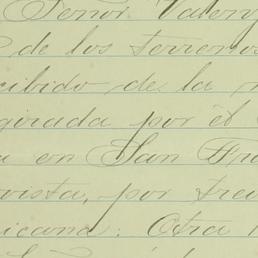 Señor Valen
de los terrenos
cibido de la
girada por él
a en San Fra
vista, por trei
icana. Otra